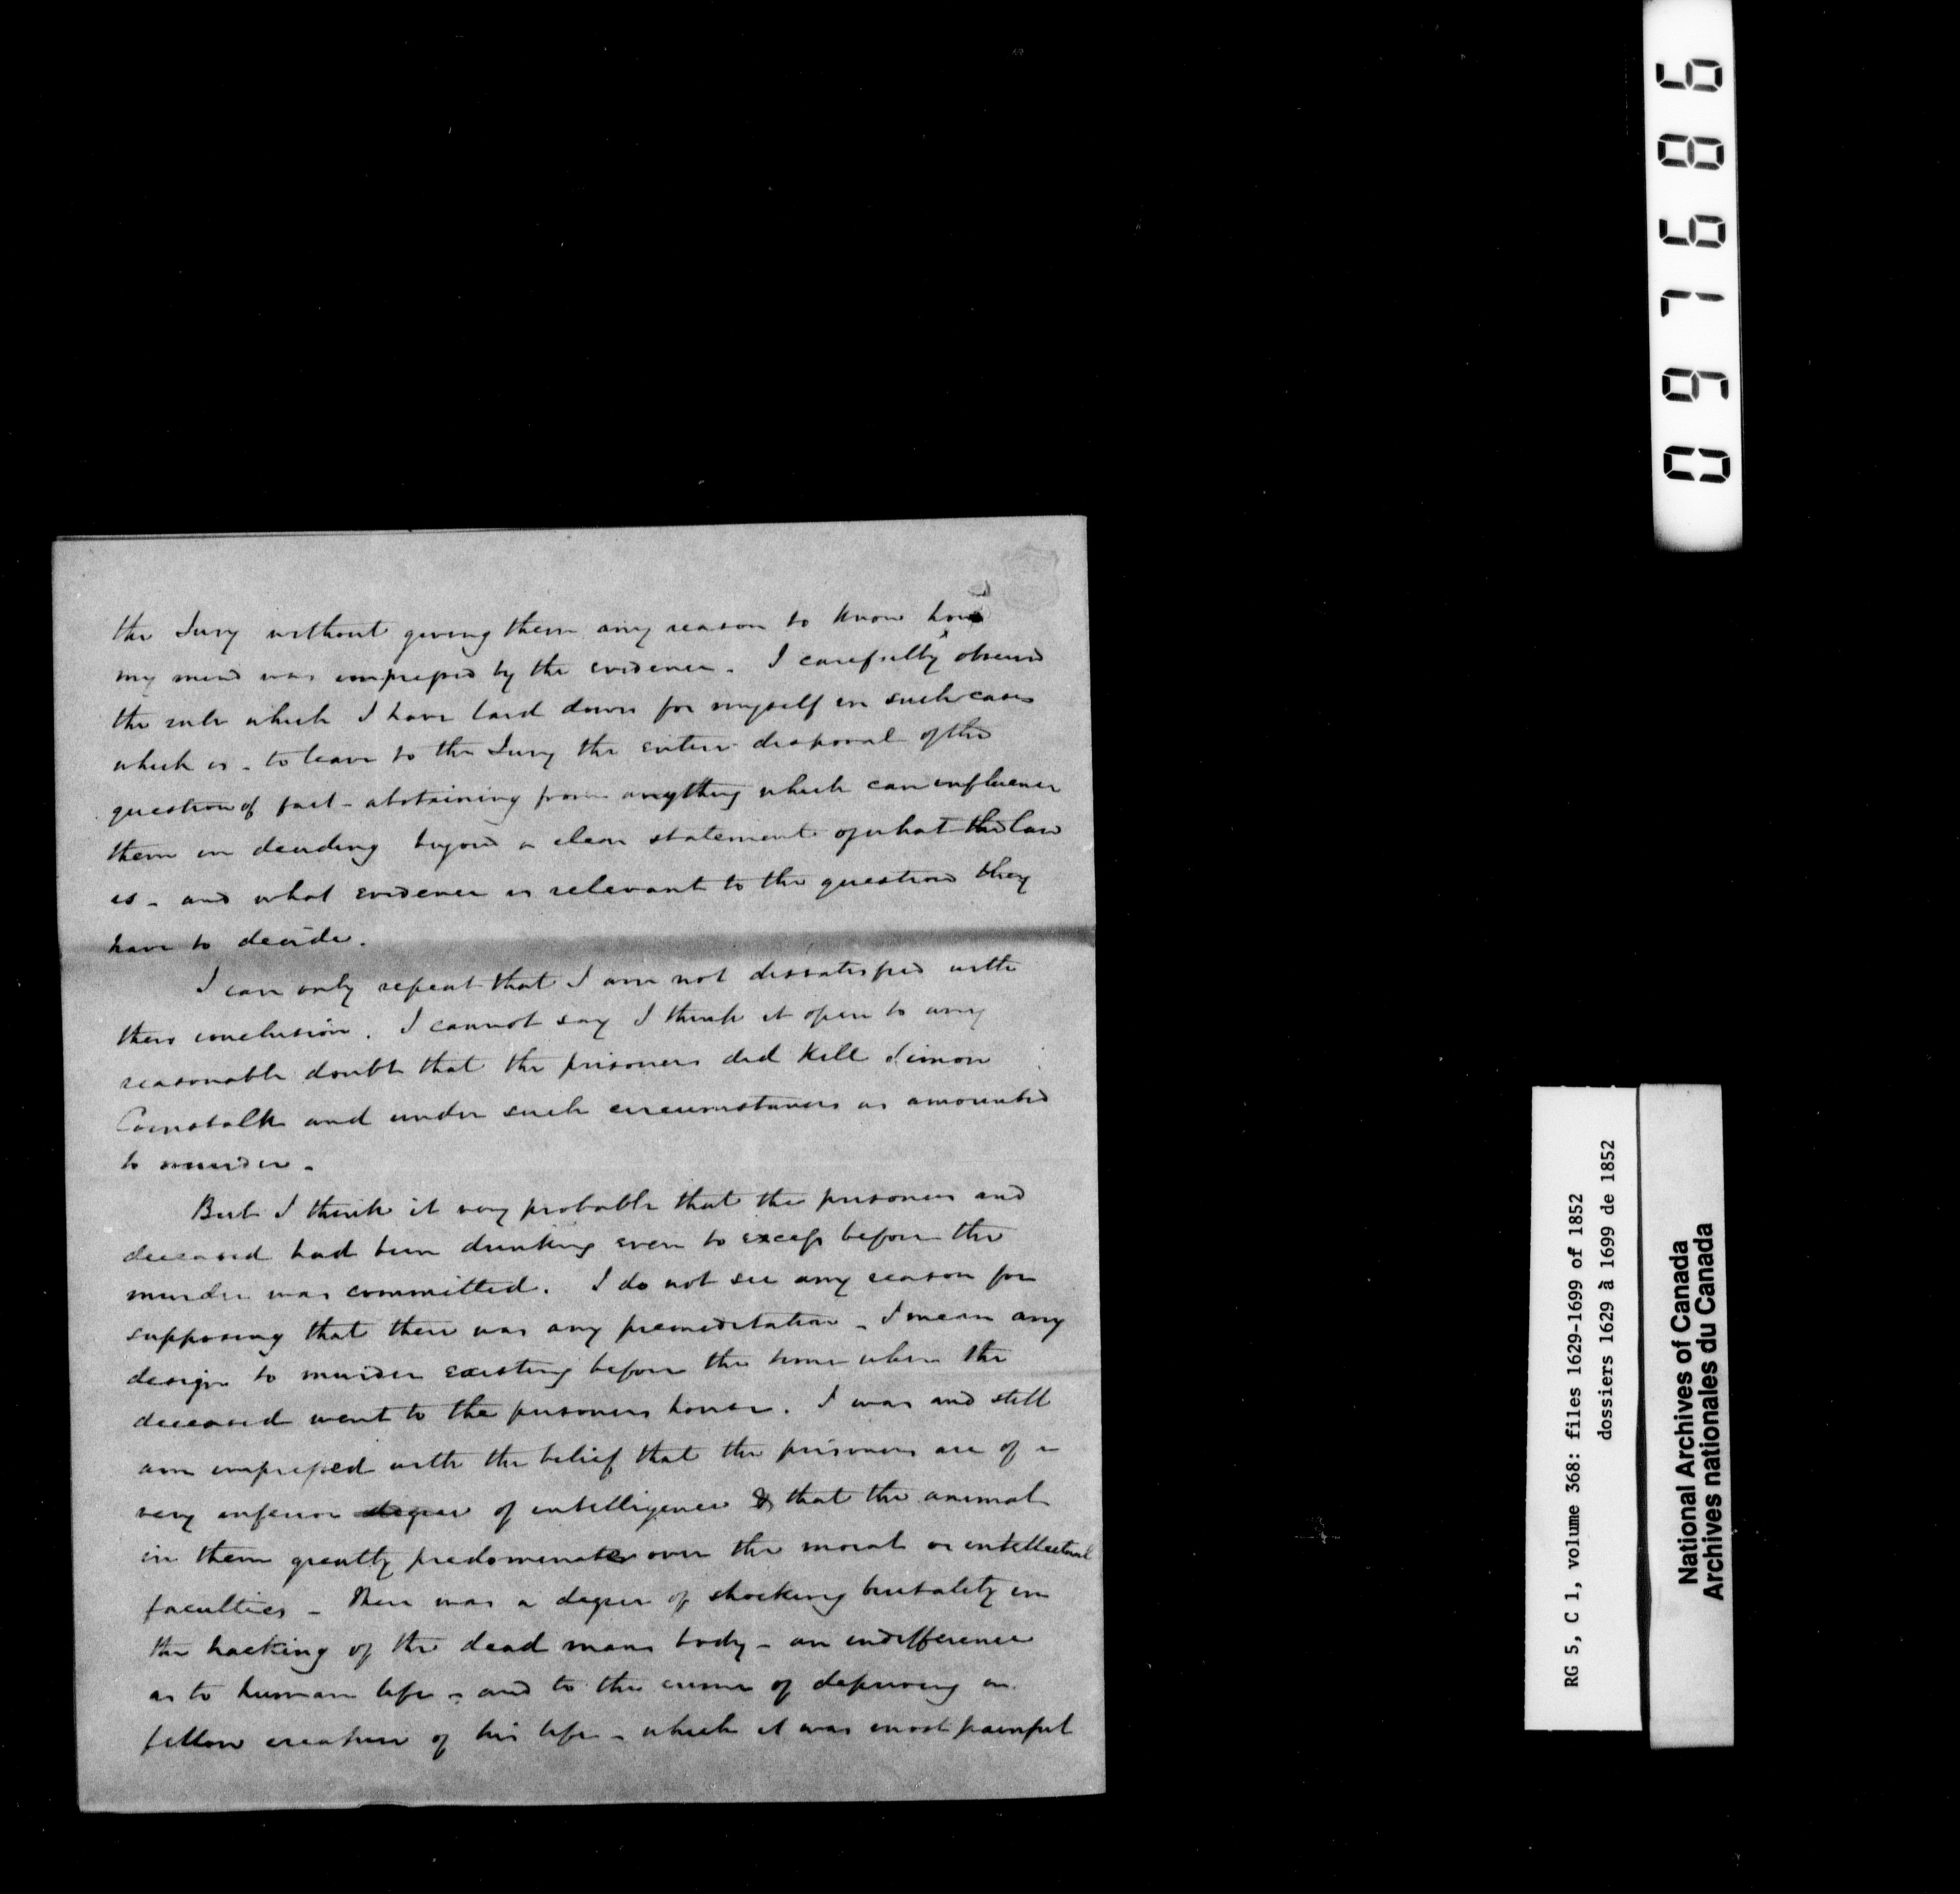 the Jury without giving them any reason to know how
my mind was impressed by the evidence. I carefully observed
the rule which I have laid down for myself in such cases
which is - to leave to the Jury the entire disposal of the
question of fact - abstaining from anything which can influence
them in deciding beyond a clear statement of what the law
is - and what evidence is relevant to the question they
have to decide.
I can only repeat that I am not dissatisfied with
their conclusion. I cannot say I think it open to any
reasonable doubt that the prisoners did kill Simon
Cornstalk and under such circumstances as amounted
to murder -
But I think it very probable that the prisoners and
deceased had been drinking even to excess before the
murder was committed. I do not see any reason for
supposing that there was any premeditation - I mean any
design to murder existing before the time when the
deceased went to the prisoners house. I was and still
am impressed with the belief that the prisoners are of a
very inferior degree of intelligence & that the animal
in them greatly predominates over the moral or intellectual
faculties - There was a degree of shocking brutality in
the hacking of the dead mans body - an indifference
as to human life - and to the crime of depriving a
fellow creature of his life - which it was most painful
097686
RG 5, C 1, volume 368: files 1629-1699 of 1852
dossiers 1629 à 1699 de 1852
National Archives of Canada
Archives nationales du Canada